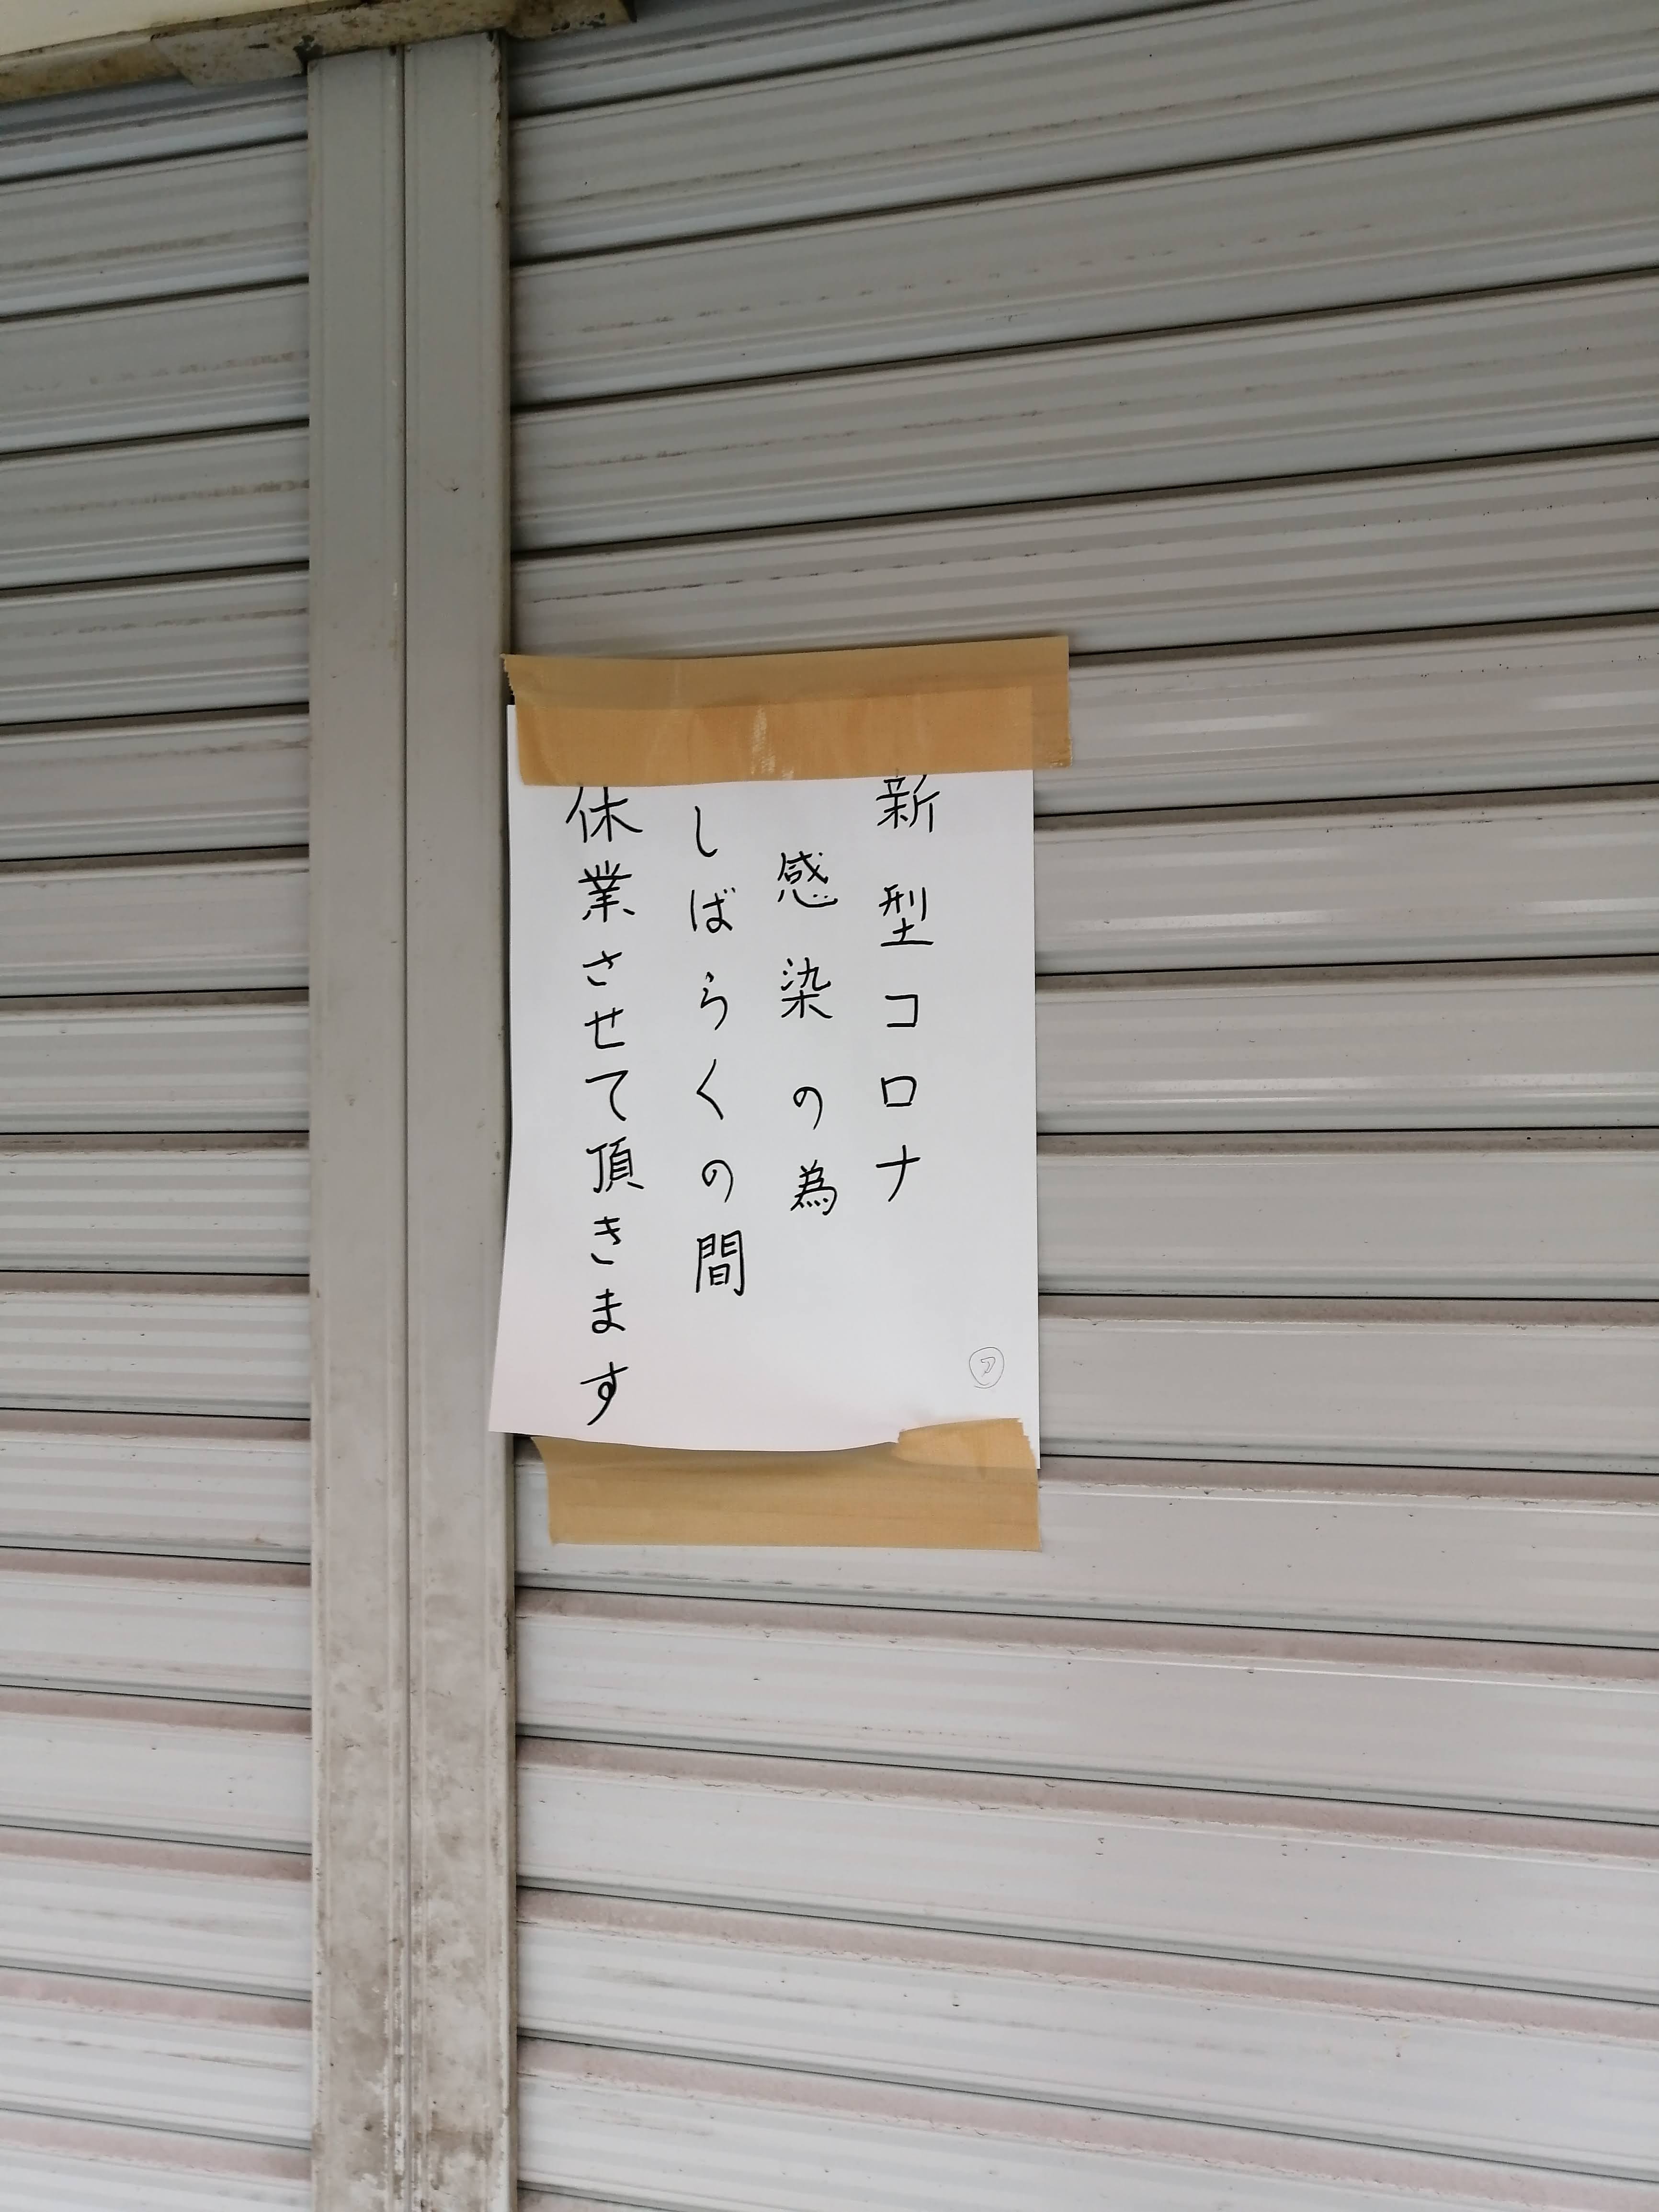 新型コロナ
感染の為
しばらくの間
休業させて頂きます
㋐